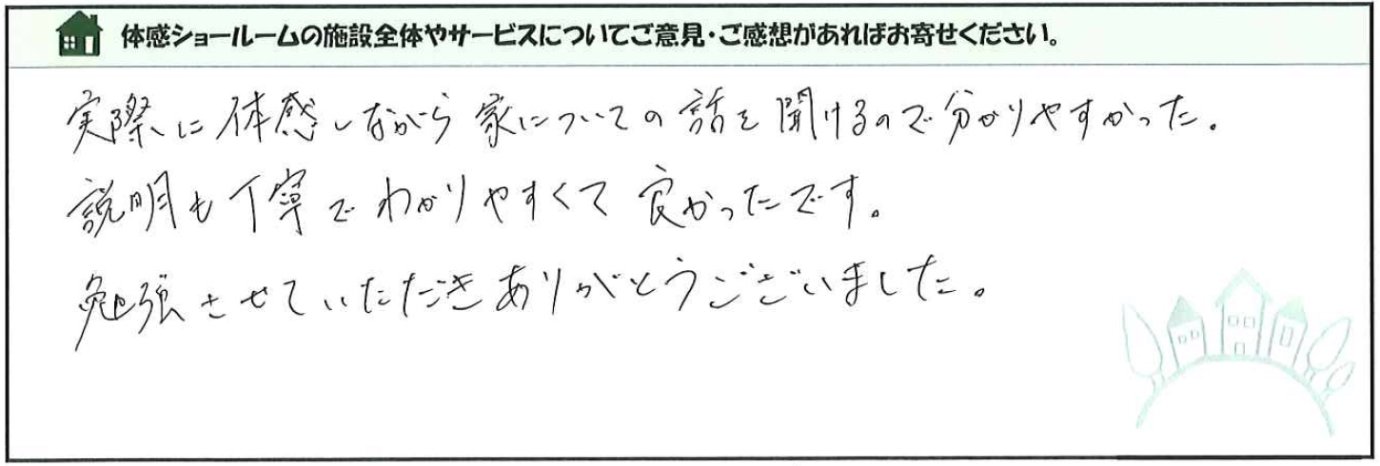 体感ショールームの施設全体やサービスについてご意見・ご感想があればお寄せください。
実際に体感しながら家についての話を聞けるので分かりやすかった。
説明も丁寧でわかりやすくて良かったです。
勉強させていただきありがとうございました。